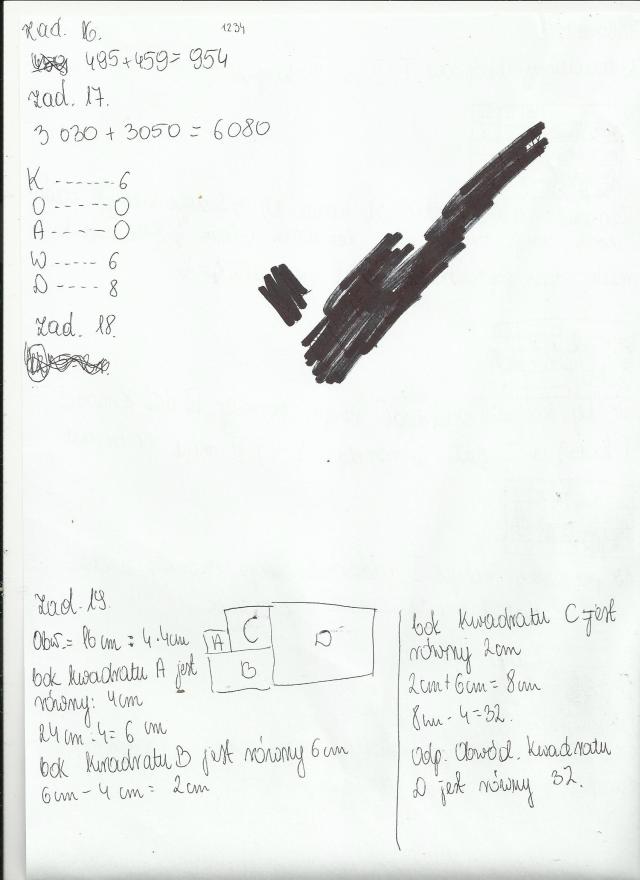 Zad. 16.
1234
495+459=954
Zad. 17.
3 030 + 3050 = 6080
K ------ 6
O ----- 0
A ---- 0
W ---- 6
D ---- 8
Zad. 18.
Zad. 19.
Obw.= 16cm : 4 = 4cm
bok kwadratu A jest
równy: 4cm
24cm : 4= 6 cm
bok kwadratu B jest równy 6cm
6cm - 4 cm = 2cm
A
C
B
D
bok kwadratu C jest
równy 2cm
2cm+6cm= 8cm
8cm · 4=32.
Odp. Obwód. kwadratu
D jest równy 32.